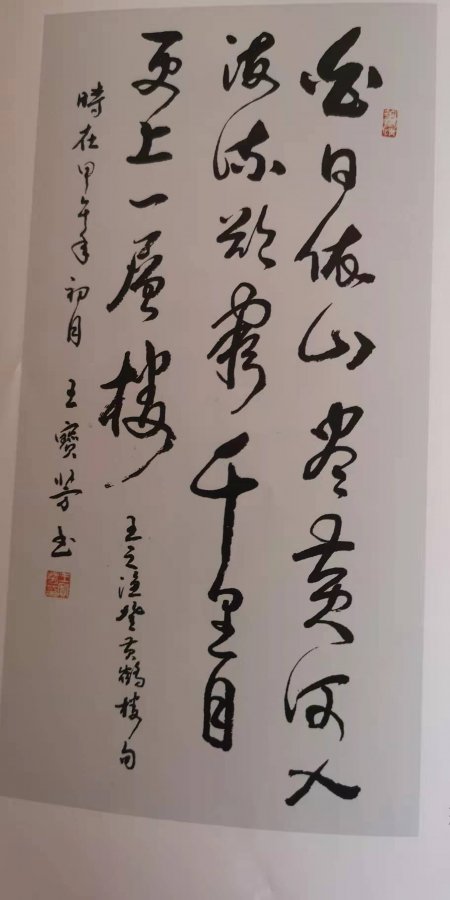 白日依山尽黄河入
海流欲窮千里目
更上一層楼
王之渙登黄鶴楼句
時在甲午年初月王寶芳书